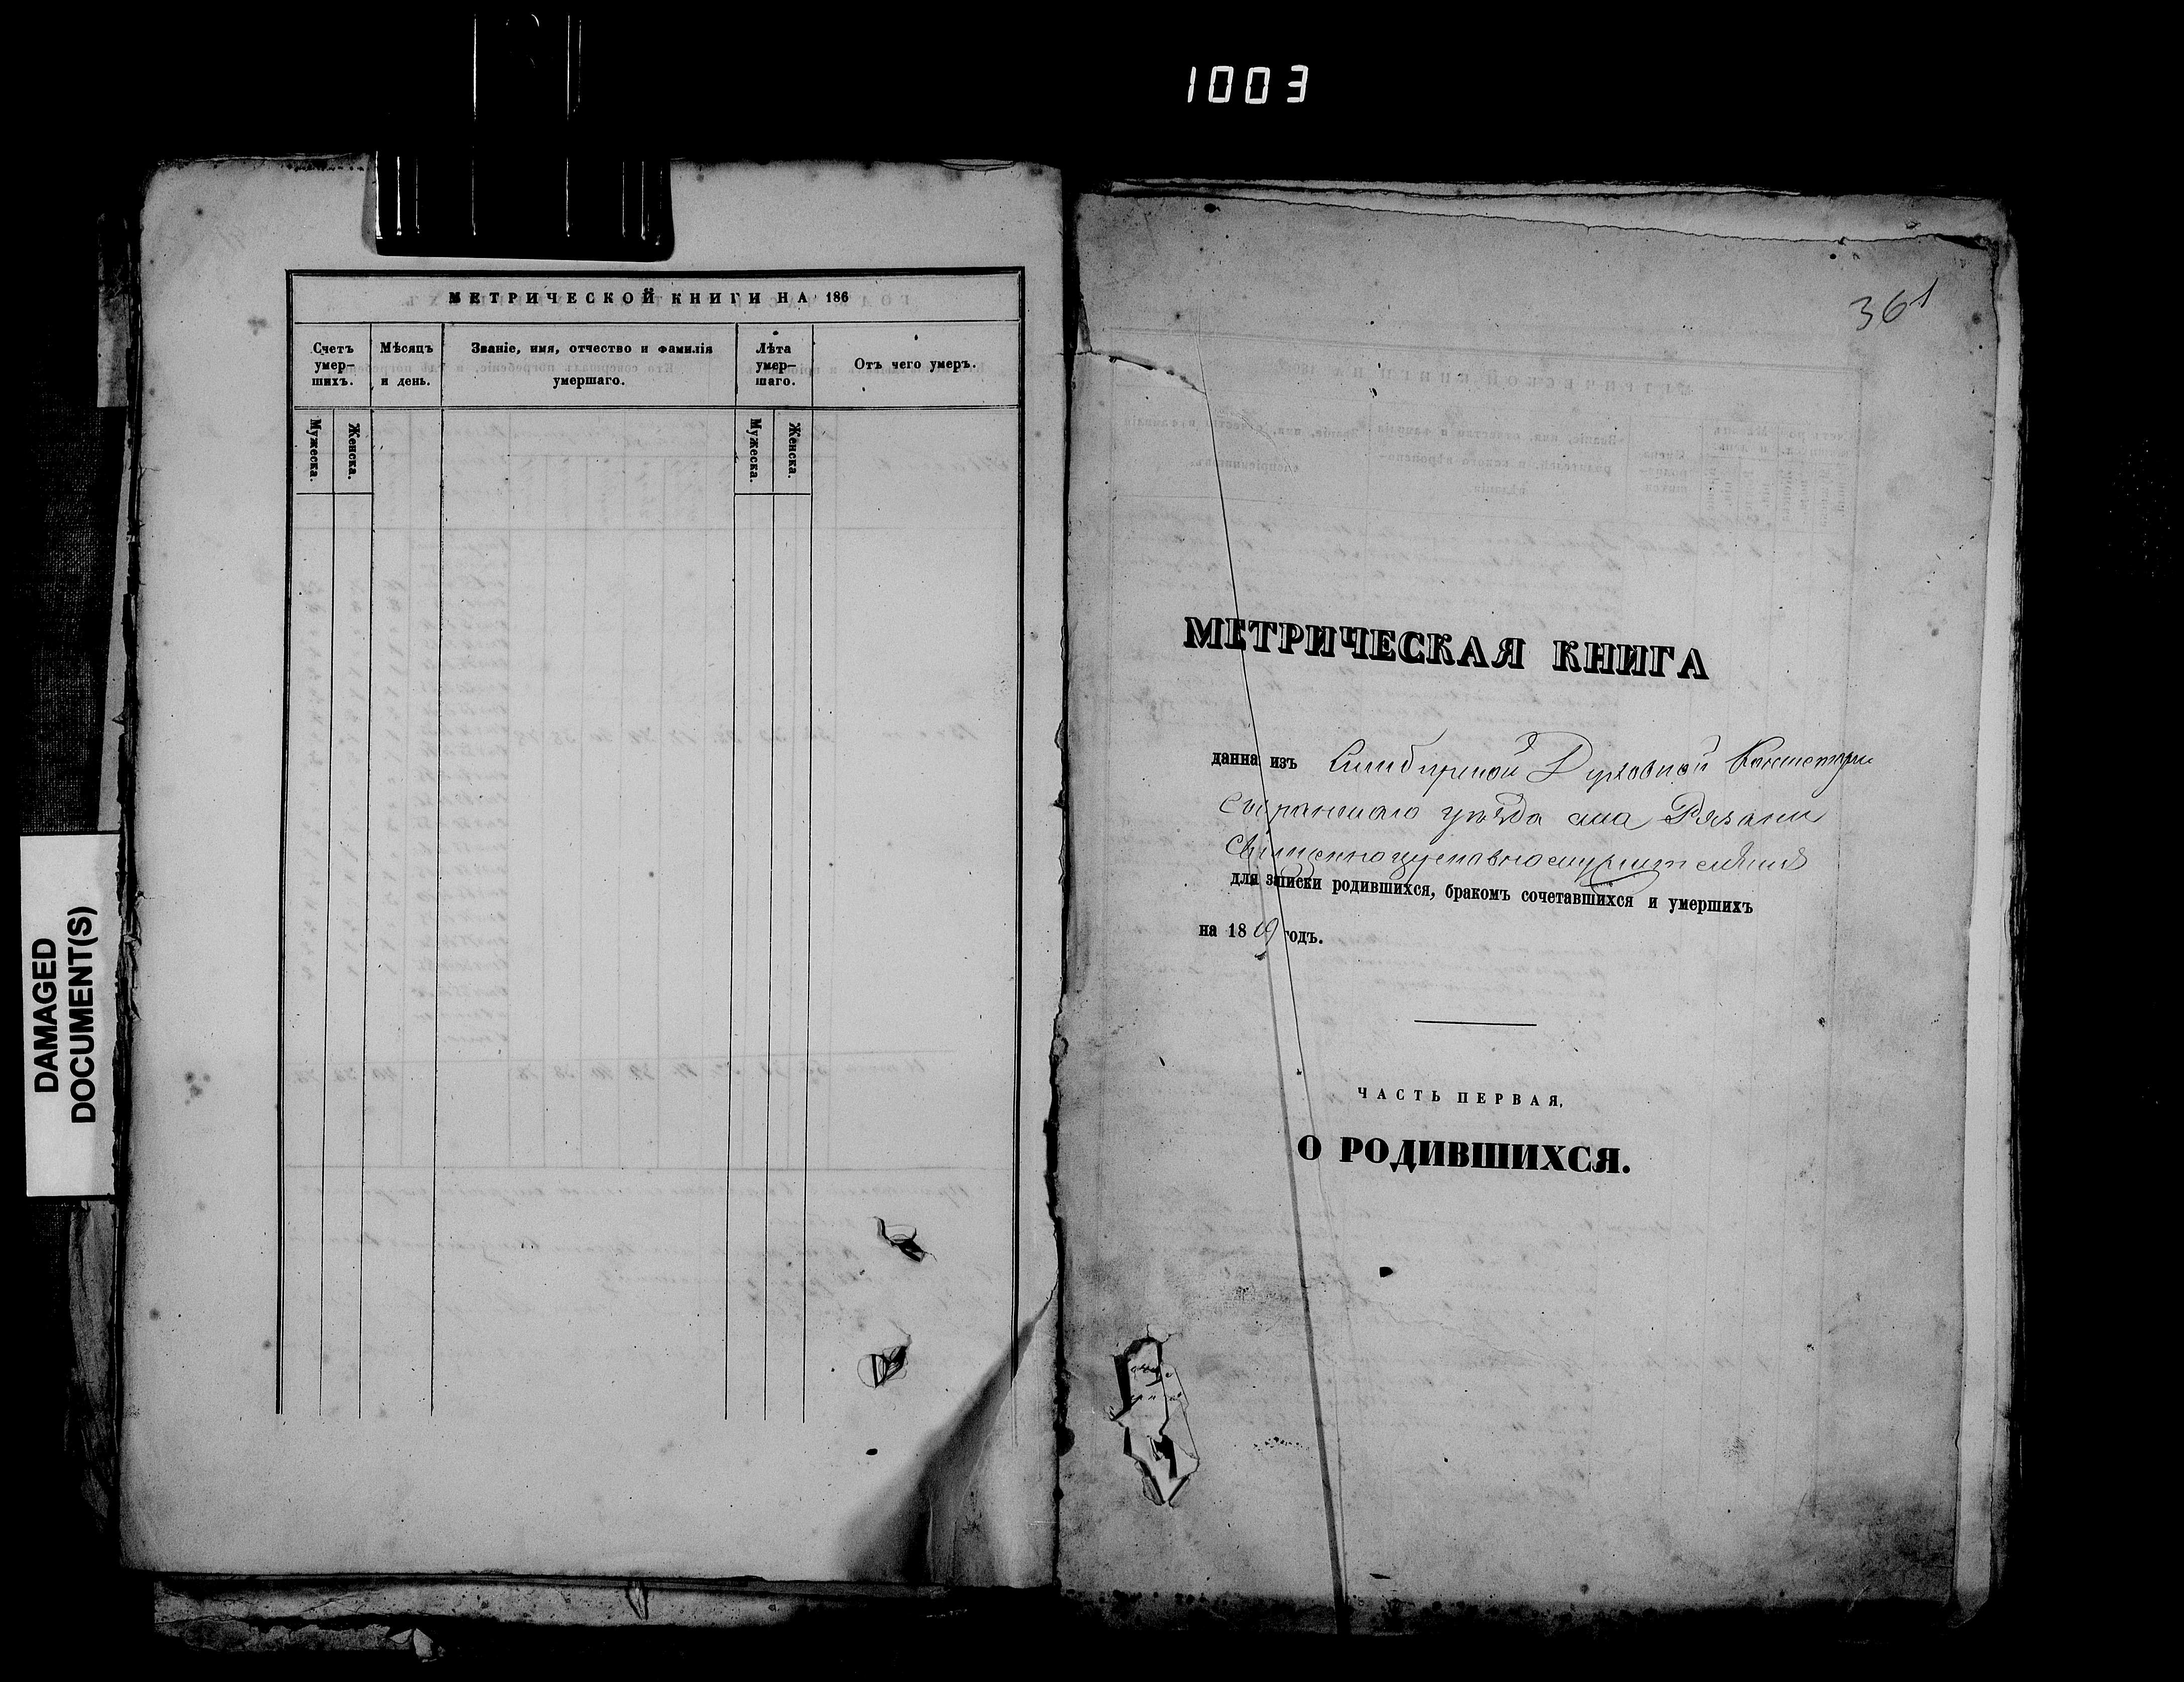 1003
DAMAGED
DOCUMENT(S)
МЕТРИЧЕСКОЙ КНИГИ НА 186
Счетъ умер-
шихъ.
Мѣсяцъ
и день.
Званіе, имя, отчество и фамилія
умершаго.
Лѣта
умер-
шаго.
Отъ чего умеръ.
Мужеска.
Женска.
Мужеска.
Женска.
361
МЕТРИЧЕСКАЯ КНИГА
данна изъ Симбирской Духовной Консисторіи
Сызранскаго уѣзда села Рязани
для записки родившихся, бракомъ сочетавшихся и умершихъ
на 1869 годъ.
ЧАСТЬ ПЕРВАЯ,
О РОДИВШИХСЯ.